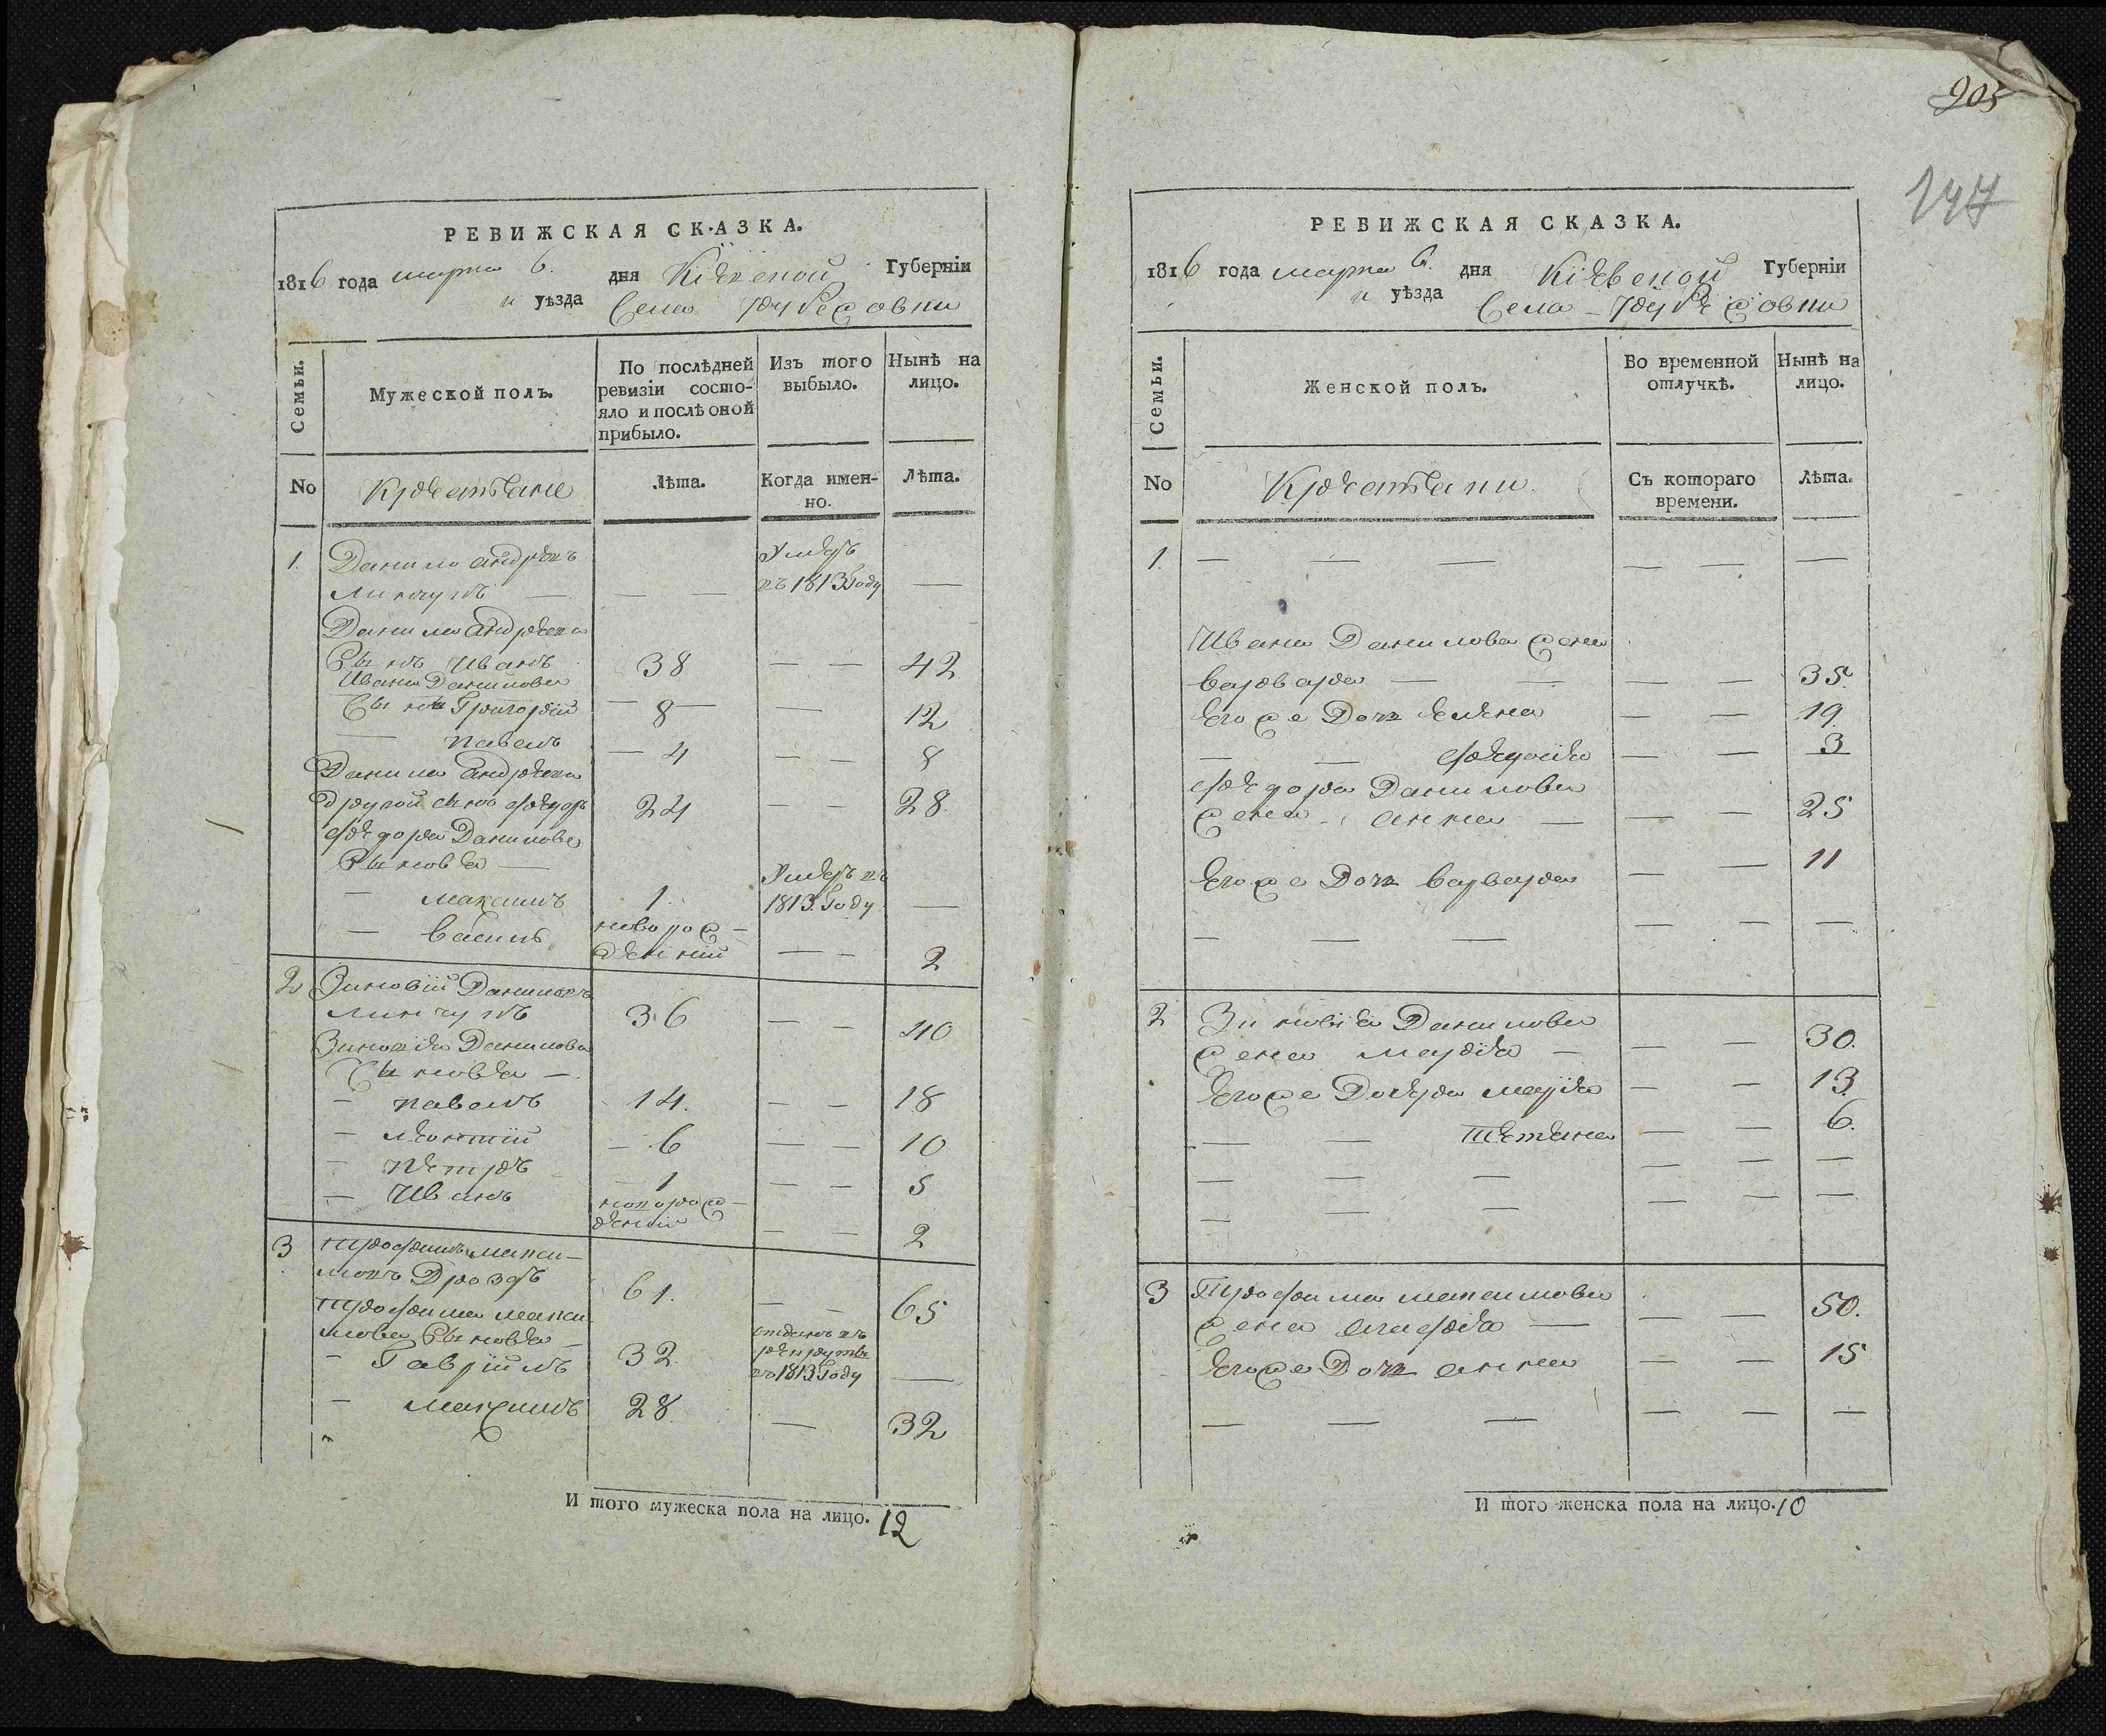 РЕВИЖСКАЯ СКАЗКА.
1816 года марта 6. дня Кіевской Губерніи
и уѣзда Села
Семьи.
Мужеской полъ.
По послѣдней ревизіи состо-
яло и послѣ оной
прибыло.
Изъ того
выбыло.
Нынѣ на
лицо.
No
Крестьяне
Лѣта.
Когда имен-
но.
Лѣта.
1. Данило Андреевъ
Умеръ
въ 1813 Году —
Данила Андреева
Сынъ Иванъ 38 — — 42
Ивана Данилова
Сынъ Григорій — 8 — — 12
— Павелъ — 4 — — 8
Данила Андреева
другой сынъ Федоръ 24 — — 28
Федора Данилова
Сыновья —
— Максимъ 1 Умеръ въ
1813 Году —
— Василь новорож-
денный — — 2
2 Зиновій Даниловъ
Линчукъ 36 — — 40
Зиновія Данилова
Сыновья —
— Павелъ 14. — — 18
— Леонтій — 6 — — 10
— Петръ — 1 — — 5
— Иванъ новорож-
деній — — 2
3 Трофимъ Макси-
мовъ Дроздъ 61. — — 65
Трофима Макси-
мова Сыновья —
— Гавріилъ 32. отданъ въ
рекруты
въ 1813 Году —
— Максимъ 28 — 32
И того мужеска пола на лицо. 12
205
147
РЕВИЖСКАЯ СКАЗКА.
1816 года марта 6. дня Кіевской Губерніи
и уѣзда Села
Семьи.
Женской полъ.
Во временной
отлучкѣ.
Нынѣ на
лицо.
No
Крестьяни.
Съ котораго
времени.
Лѣта.
1. — — — — — —
Ивана Данилова жена
Варвара — — — — 35.
Егоже Доч Елена — — 19.
— — — — 3
Федора Данилова
жена Анна — — — 25
Егоже Доч Варвара — — 11
— — — — — —
2 Зиновія Данилова
жена Марія — — — 30.
Егоже Дочера Марія — — 13.
— — Тетяна — — 6.
— — — — — —
— — — — — —
3 Трофима Максимова
жена Агафія — — — 50.
Егоже Доч Анна — — 15
— — — — — —
И того женска пола на лицо. 10